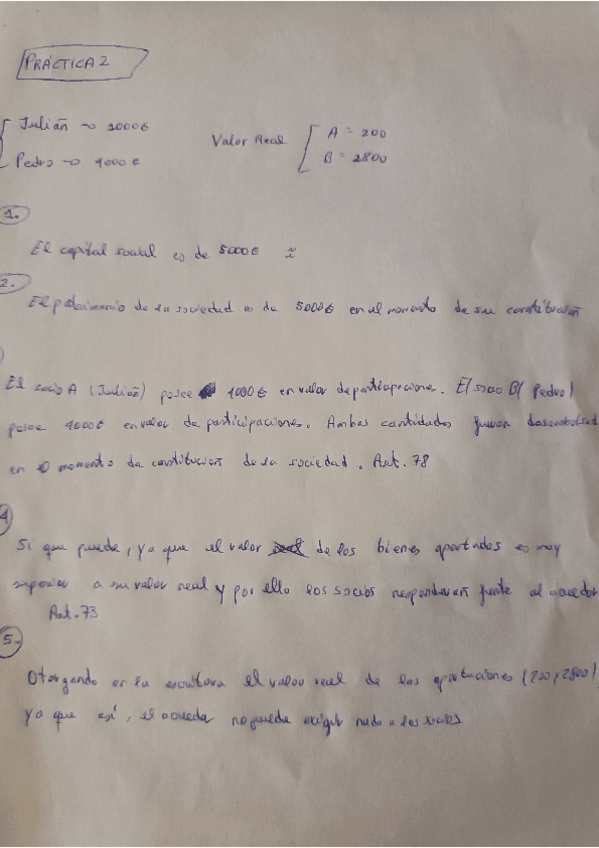 PRÁCTICA 2
Julián → 1000€
Pedro → 4000 €
Valor Real
A = 200
B = 2800
1.
El capital social es de 5000€
2.
El patrimonio de la sociedad es de 5000€ en el momento de su constitución
El socio A (Julián) posee 1000€ en valor de participaciones. El socio B( Pedro)
posee 4000€ en valor de participaciones. Ambas cantidades fueron desembolsad
en el momento de constitución de la sociedad. Art. 78
4
Si que puede, ya que el valor de los bienes aportados es muy
superior a su valor real y por ello los socios responderán frente al acreedor
Art. 73
5.
Otorgando en la escritura el valor real de las aportaciones (200 y 2800)
ya que así, el acreedor no puede exigir nada a los socios